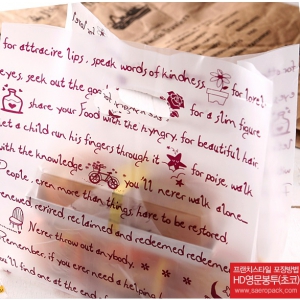 for attracire lips, speak words of kindness, for lovel
eyes, seek out the goo
for a slim figure
share your food with the hyngry, for beautiful hair
et a child run his fingers through it for poise, walk
with the knowledge you'll never walk alone
eople, even more than things, have to be restored,
renewed, rerired, reclaimed and redeemed redeeme
Nerer throw out anybody.
Remember, if you ever need a helping
you'll find one at the end
프랜치스타일 포장방법
HD영문봉투(초코)
www.saeropack.com